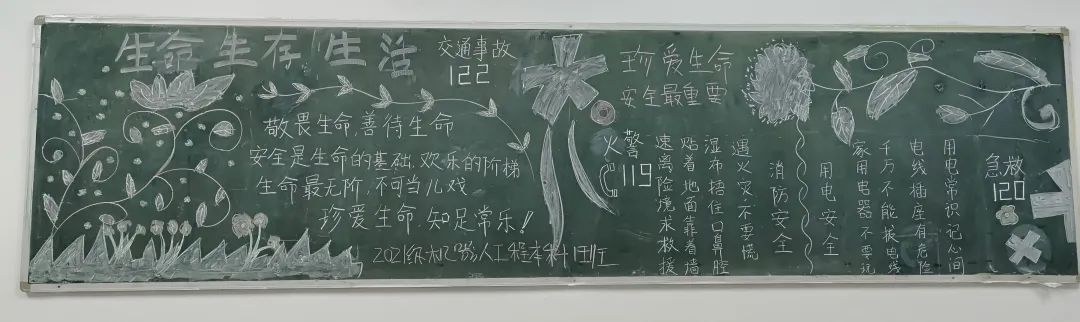 生命 生存 生活
交通事故
122
敬畏生命,善待生命
安全是生命的基础,欢乐的阶梯
生命最无阶,不可当儿戏
珍爱生命,知足常乐!!
2021级 人工程本科1班
珍爱生命
安全最重要
火警
119
消防安全
遇火灾不要慌
湿布捂住口鼻腔
贴着地面靠着墙
速离险境求救援
用电安全
用电常识记心间
电线插座有危险
千万不能拔电线
家用电器不要玩
急救
120